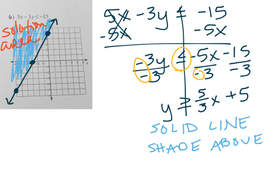 6) 5x - 3y ≤ -15
solution
area
5x -3y ≤ -15
-5x -5x
-3y ≤ -5x -15
-3 -3 -3
y ≥ 5/3 x + 5
SOLID LINE
SHADE ABOVE